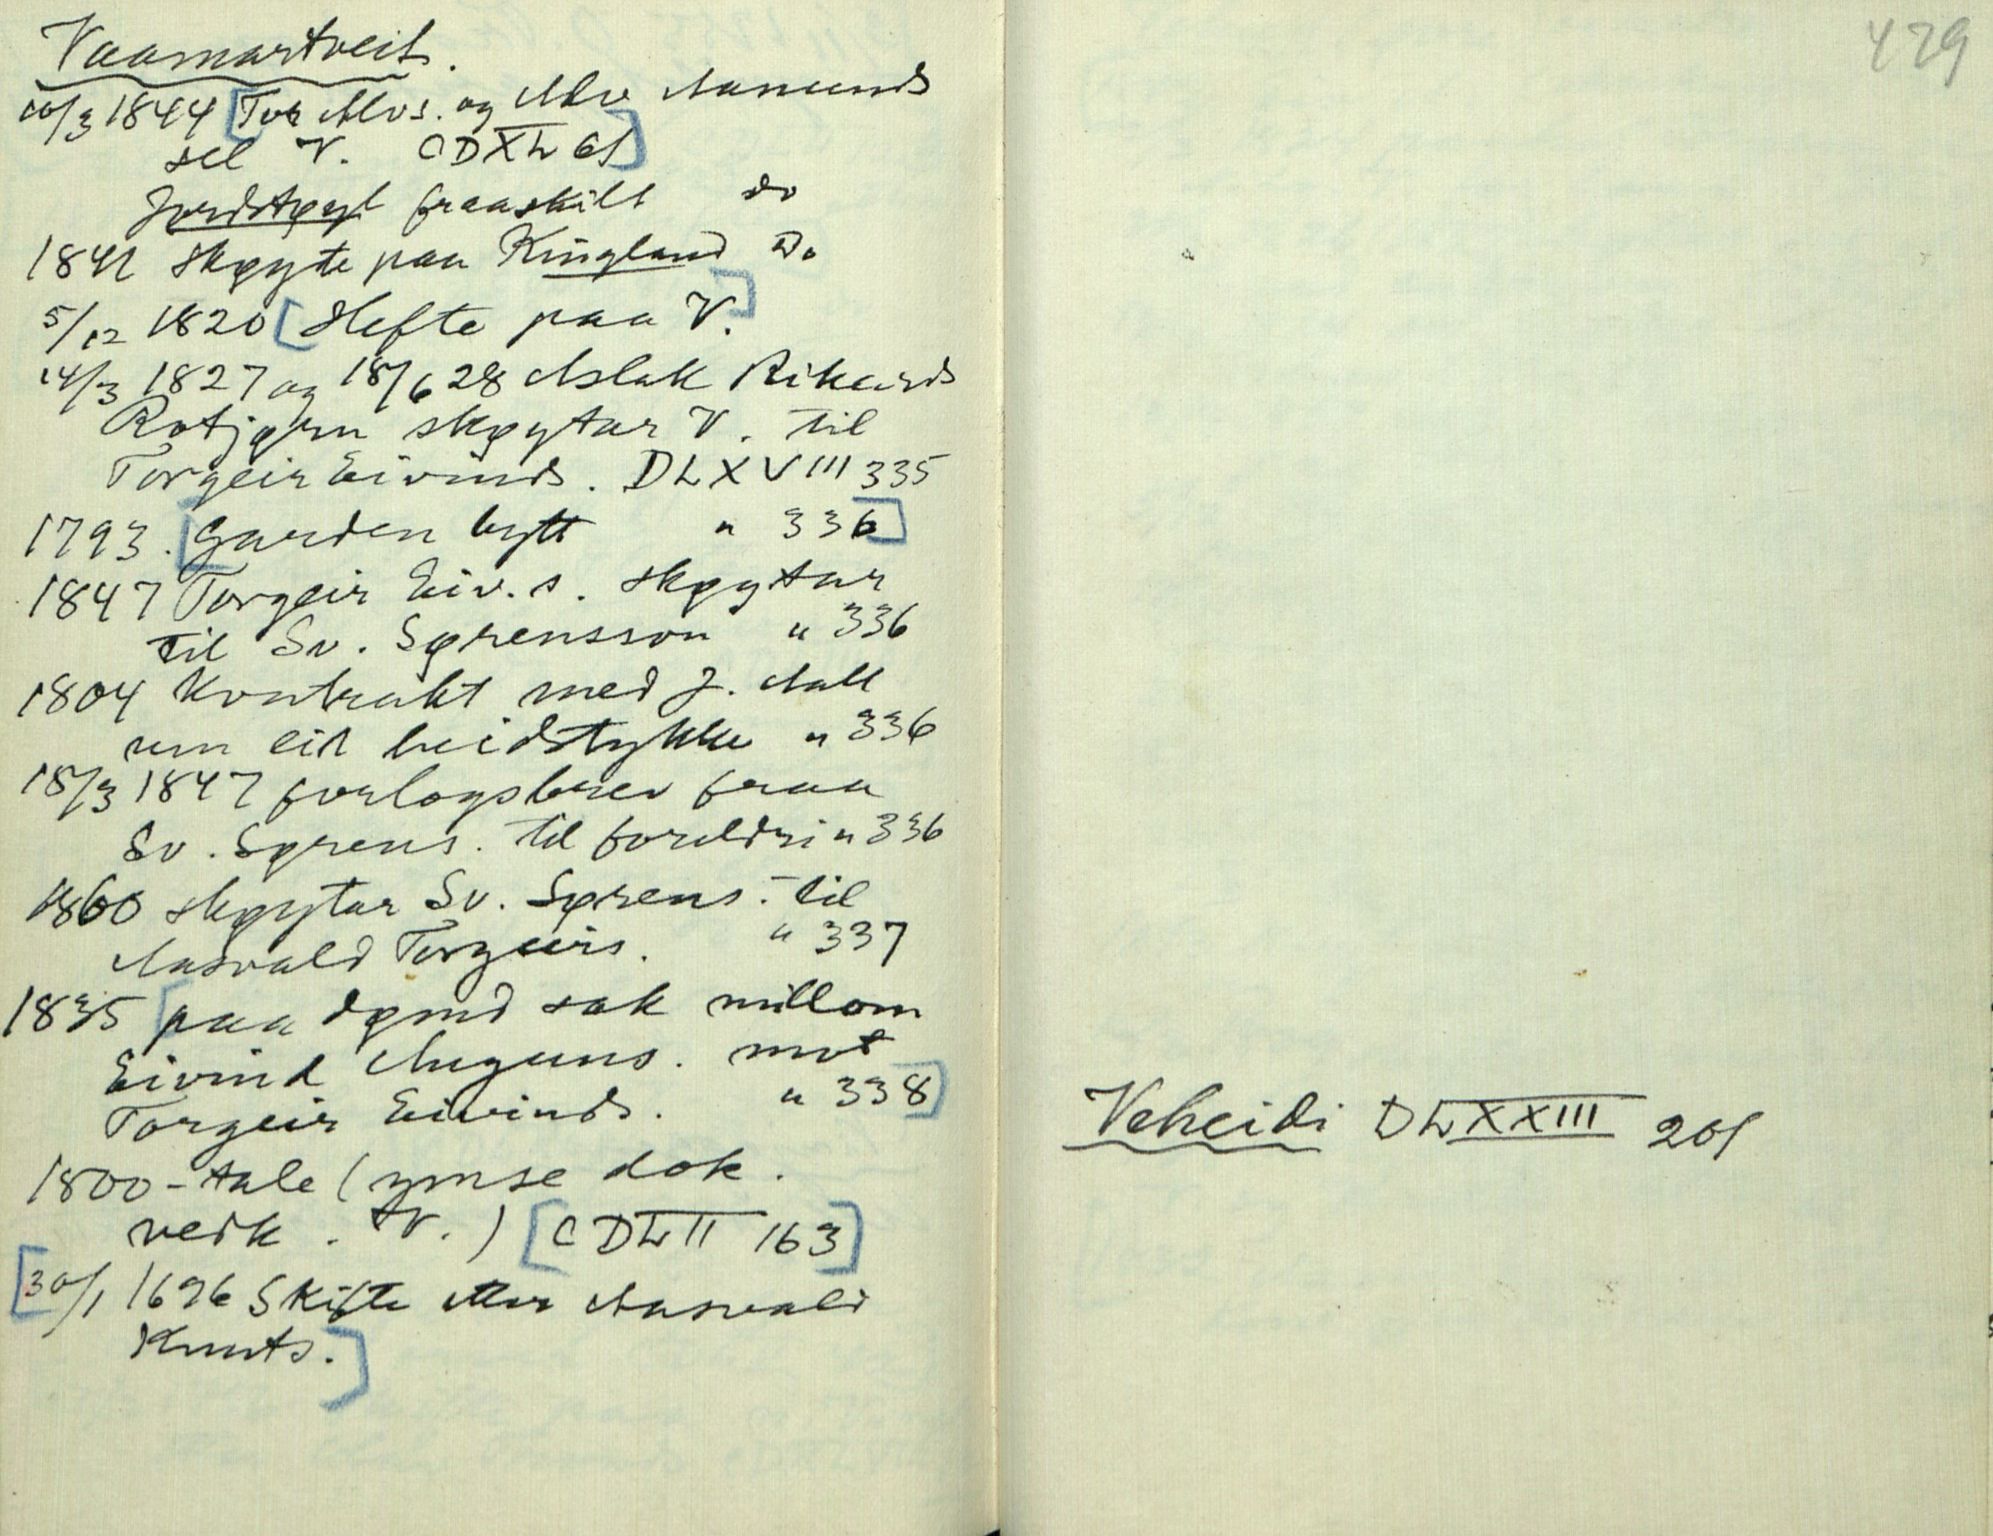 Vaamartveit.
10/3 1844 [Tor Alvs. og Alv Aamunds
sel V. CDXL 61]
Jordstøyl fraaskilt do
1841 skøyte paa Kingland Do
5/12 1820 [Hefte paa V.]
14/3 1827 og 18/6 28 Aslak Rikards
Rotjørn skøytar V. til
Torgeir Eivinds. DLXVIII 335
1793. [Garden bytt " 336]
1847 Torgeir Eiv.s. skøytar
til Sv. Sørensson " 336
1804 Kontrakt med J. Aall
um eit heidstykke " 336
18/3 1847 forlogsbrev fraa
Sv. Sørens. til foreldri " 336
1860 skøytar Sv. Sørens. til
Aasvald Torgeirs. " 337
1835 [paa dømd sak millom
Eivind Auguns. mot
Torgeir Eivinds. " 338]
1800-tale (ymse dok.
vedk. V.) [CDLII 163]
[30/1 1696 Skifte etter Aasvald
Knuts.]
429
Veheidi DLXXIII 201